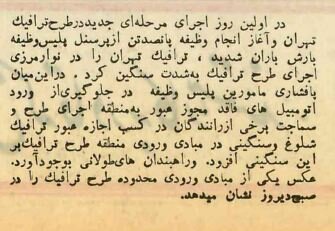 در اولین روز اجرای مرحله‌ای جدیددرطرح‌ترافیک
تهران وآغاز انجام وظیفه پانصدتن ازپرسنل پلیس‌وظیفه
بارش باران شدید ، ترافیک تهران را در نوارمرزی
اجرای طرح ترافیک به‌شدت سنگین کرد . دراین‌میان
پافشاری مامورین پلیس وظیفه در جلوگیری‌از ورود
اتومبیل های فاقد مجوز عبور به‌منطقه اجرای طرح و
سماجت برخی ازرانندگان در کسب اجازه عبور ترافیک
شلوغ وسنگینی در مبادی ورودی منطقه طرح ترافیک‌بر
این سنگینی افزود. وراهبندان های‌طولانی بوجودآورد.
عکس یکی از مبادی ورودی محدوده طرح ترافیک را در
صبح‌دیروز نشان میدهد.